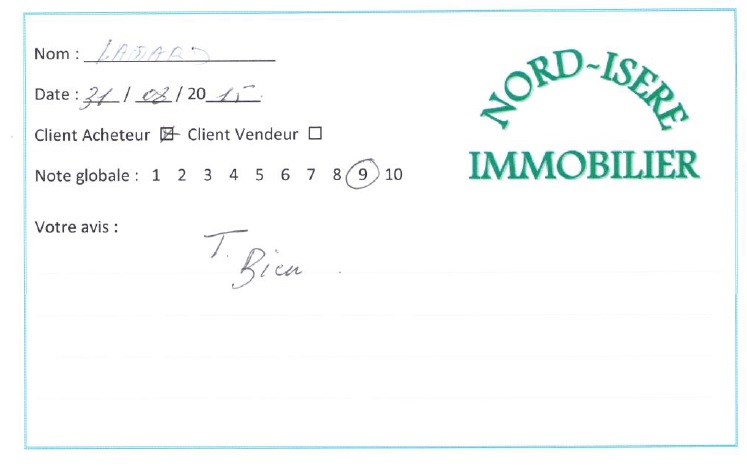 Nom :
Date : 31 / 08 / 20 15
Client Acheteur ☒ Client Vendeur ☐
Note globale : 1 2 3 4 5 6 7 8 9 10
Votre avis :
T. Bien
NORD-ISERE
IMMOBILIER